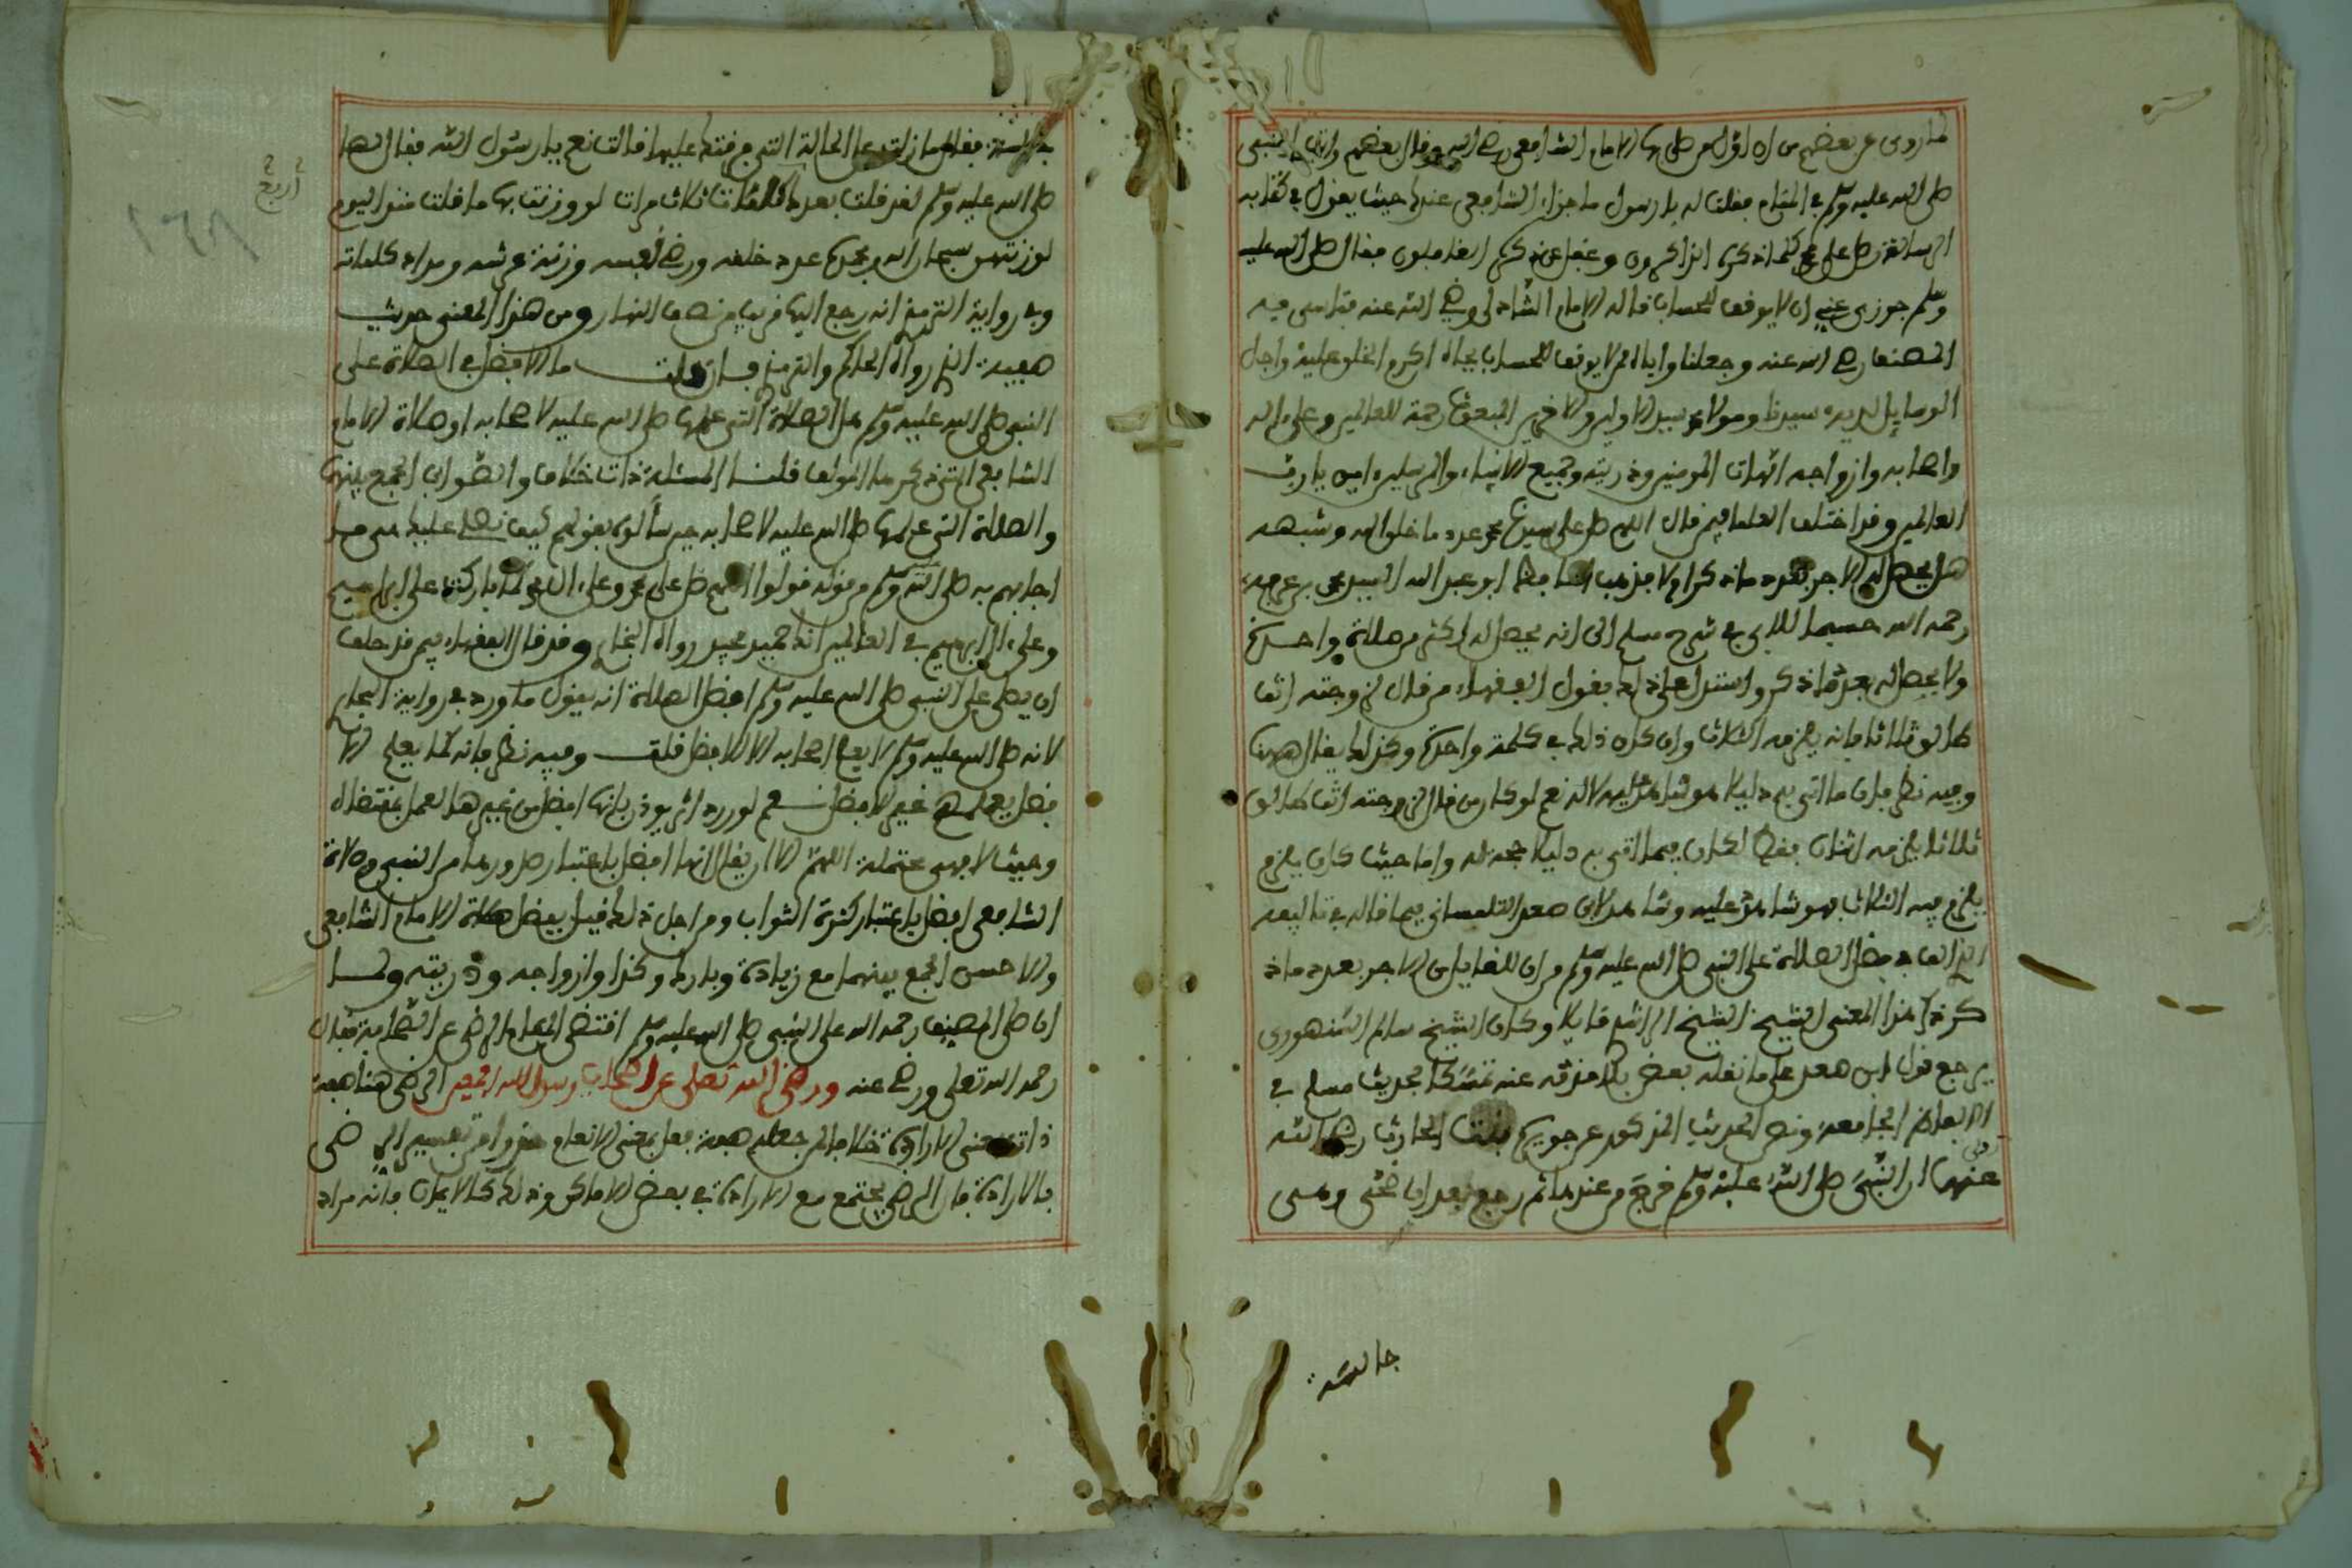 لما روى عن بعضهم من ان اول من صلى بها الامام الشافعي رضي الله وقال بعضهم رايت النبي
صلى الله عليه وسلم في المنام فقلت له يا رسول ما جزاء الشافعي عندك حيث يقول في كتابه
الرسالة وصل على محمد كلما ذكرك الذاكرون وغفل عن ذكرك الغافلون فقال صلى الله عليه
وسلم جوزي عني ان لا يوقف للحساب قاله الامام الشاذلي رضي الله عنه
المصنف رضي الله عنه وجعلنا واياه ممن لا يوقف للحساب بجاه اكرم الخلق عليه واجل
الوسايل لديه سيدنا ومولانا محمد سيد الاولين والاخرين المبعوث رحمة للعالمين وعلى اله
واصحابه وازواجه امهات المومنين وذريته وجميع الانبياء والمرسلين امين يا رب
العالمين وقد اختلف العلما فيمن قال اللهم صل على سيدنا محمد عدد ما خلق الله وشبهه
هل يحصل له الاجر بعدد ما ذكر ام لا فذهب ابو عبد الله السيد محمد بن عرفة
رحمه الله حسبما للابي في شرح مسلم الى انه يحصل له اكثر من صلاة واحدة
ولا يحصل له بعدد ما ذكر واستدل على ذلك بقول الفقهاء من قال لزوجته انت
طالق ثلاثا فانه يلزمه الثلاث وان كان ذلك في كلمة واحدة وكذلك يقال ههنا
وفيه نظر فان ما اتى به دليلا هو شاهد عليه لا له نعم لو كان من قال لزوجته انت طالق
ثلاثا يلزمه اثنان فقط لكان فيما اتى به دليلا حجة له واما حيث كان يلزم
يلزم فيه الثلاث فهو شاهد عليه وشاهد لابن صعد التلمساني فيما قاله في تاليفه
الذي الف في فضل الصلاة على النبي صلى الله عليه وسلم من ان للقايل من الاجر بعدد ما ذ
كر ذكر هذا المعنى الشيخ الراشدي قايلا وكان الشيخ سالم السنهوري
يرجح قول ابن صعد على ما نقله بعض تلامذته عنه تمسكا بحديث مسلم في
الالفاظ الجامعة ونص الحديث المذكور عن جويرية بنت الحارث رضي الله
عنها ان النبي صلى الله عليه وسلم خرج من عندها ثم رجع بعد ان اضحى وهي
جالسة
فقال ما زلت على الحالة التي فارقتك عليها قالت نعم يا رسول الله فقال لها
صلى الله عليه وسلم لقد قلت بعدك كلمات ثلاث مرات لو وزنت بها ما قلت منذ اليوم
لوزنتهن سبحان الله وبحمده عدد خلقه ورضى نفسه وزنة عرشه ومداد كلماته
وفي رواية الترمذي انه رجع اليها قريبا من نصف النهار ومن هذا المعنى حديث
صفية الذي رواه الحاكم والترمذي فان قلت ما الافضل في الصلاة على
النبي صلى الله عليه وسلم هل الصلاة التي علمها صلى الله عليه لاصحابه او صلاة الامام
الشافعي التي ذكرها المولف قلنا المسئلة ذات خلاف والصواب الجمع بينها
والصلاة التي علمها صلى الله عليه لاصحابه حين سألوه بقولهم كيف نصلي عليك هي ما
اجابهم به صلى الله وسلم من قوله قولوا اللهم صل على محمد وعلى ال محمد كما باركت على ابراهيم
وعلى ال ابراهيم في العالمين انك حميد مجيد رواه البخاري وقد قال الفقهاء فيمن حلف
ان يصلي على النبي صلى الله عليه وسلم افضل الصلاة انه يقول ما ورد في رواية البخاري
لانه صلى الله عليه وسلم لا يعلم اصحابه الا الافضل قلت وفيه نظر فانه كما يعلم الا
فضل يعلمهم غير الافضل نعم لو ورد اثر يوذن بانها افضل من غيرها لعمل بمقتضاه
وحيث لا فهي محتملة اللهم الا ان يقال انها افضل باعتبار صدورها من النبي وصلاة
الشافعي افضل باعتبار كثرة الثواب ومن اجل ذلك قيل بفضل صلاة الامام الشافعي
والاحسن الجمع بينهما مع زيادة وبارك وكذا وازواجه وذريته ولما
ان صلى المصنف رحمه الله على النبي صلى الله عليه وسلم اقتضى المقام الرضى عن الصحابة فقال
رحمه الله تعلى ورضي عنه ورضي الله تعلى عن اصحاب رسول الله اجمعين الرضى هنا صفة
ذات بمعنى الارادة خلافا لمن جعله صفة فعل بمعنى الانعام
بالارادة فان الرضى يجتمع مع الارادة في بعض الاماكن وذلك كالايمان فانه مراد
أربع
١٦٨